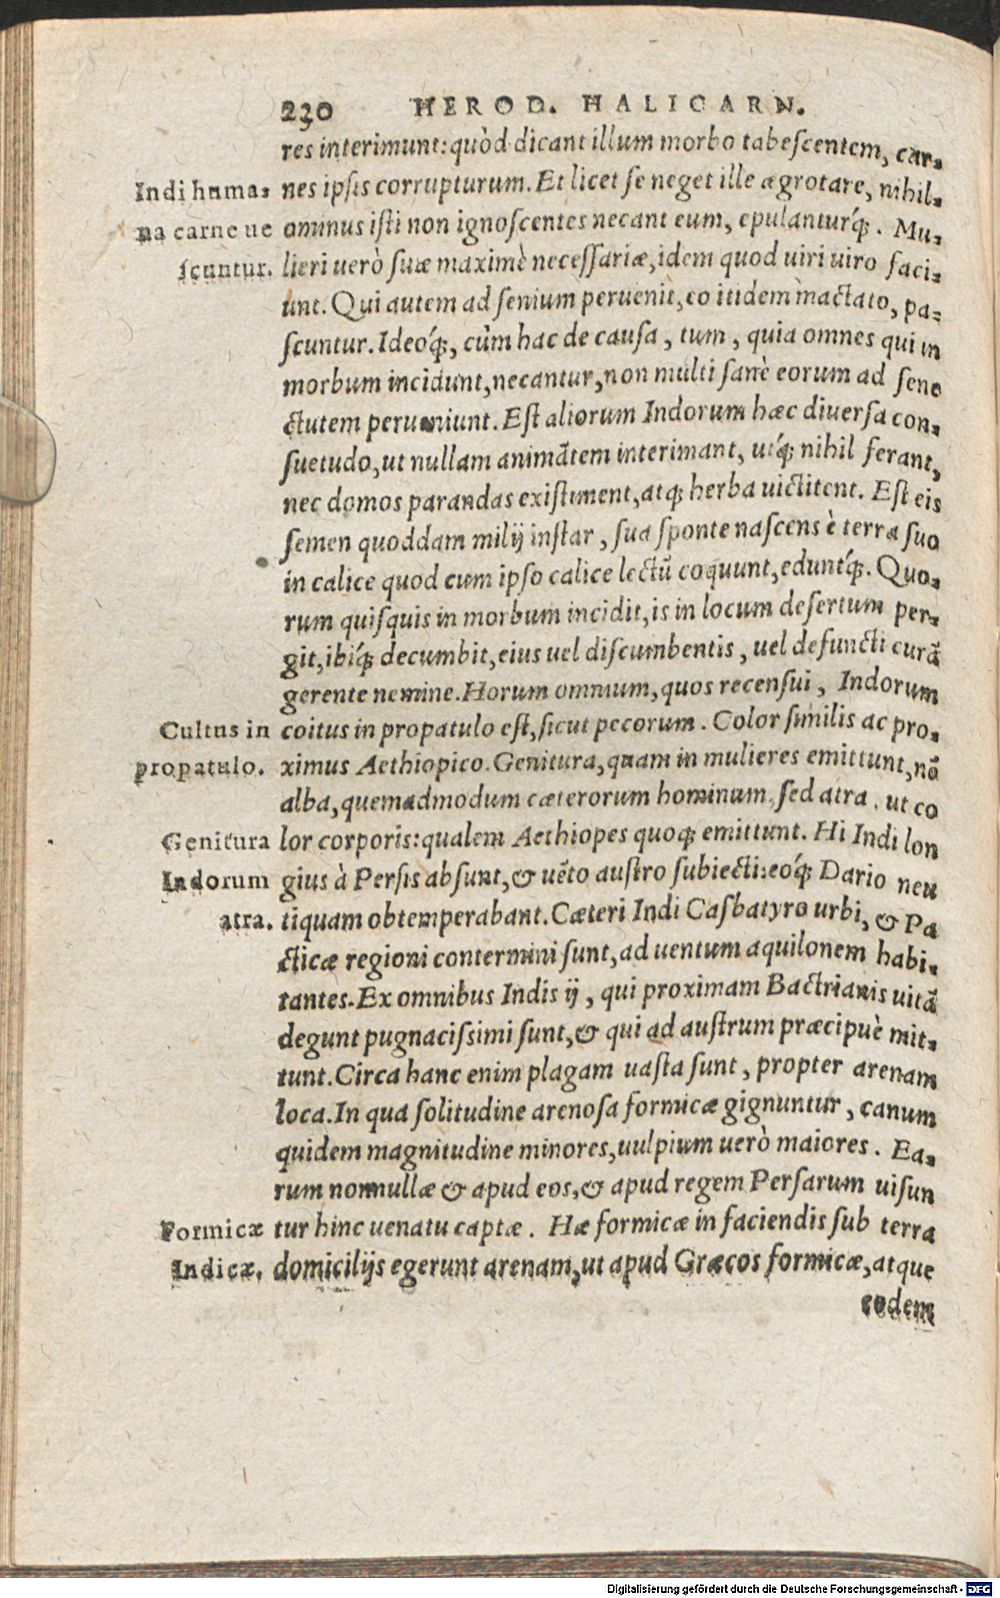 230 HEROD. HALICARN.
res interimunt: quòd dicant illum morbo tabescentem, car-
Indi huma- nes ipsis corrupturum. Et licet se neget ille ægrotare, nihil-
na carne ue ominus isti non ignoscentes necant eum, epulanturq́;. Mu-
scuntur. lieri uerò suæ maximè necessariæ, idem quod uiri uiro faci-
unt. Qui autem ad senium peruenit, eo itidem mactato, pa-
scuntur. Ideoq́;, cùm hac de causa, tum, quia omnes qui in
morbum incidunt, necantur, non multi sanè eorum ad sene
ctutem perueniunt. Est aliorum Indorum hæc diuersa con-
suetudo, ut nullam animãtem interimant, utq́; nihil ferant,
nec domos parandas existiment, atq; herba uictitent. Est eis
semen quoddam milij instar, sua sponte nascens è terra suo
in calice quod cum ipso calice lectũ coquunt, eduntq́;. Quo-
rum quisquis in morbum incidit, is in locum desertum per-
git, ibiq́; decumbit, eius uel discumbentis, uel defuncti curã
gerente nemine. Horum omnium, quos recensui, Indorum
Cultus in coitus in propatulo est, sicut pecorum. Color similis ac pro-
propatulo. ximus Aethiopico. Genitura, quam in mulieres emittunt, nõ
alba, quemadmodum cæterorum hominum, sed atra, ut co
Genitura lor corporis: qualem Aethiopes quoq; emittunt. Hi Indi lon
Indorum gius à Persis absunt, & uẽto austro subiecti: eoq́; Dario neu
atra. tiquam obtemperabant. Cæteri Indi Casbatyro urbi, & Pa
cticæ regioni contermini sunt, ad uentum aquilonem habi-
tantes. Ex omnibus Indis ij, qui proximam Bactrianis uitã
degunt pugnacissimi sunt, & qui ad austrum præcipuè mit-
tunt. Circa hanc enim plagam uasta sunt, propter arenam
loca. In qua solitudine arenosa formicæ gignuntur, canum
quidem magnitudine minores, uulpium uerò maiores. Ea-
rum nonnullæ & apud eos, & apud regem Persarum uisun
Formicæ tur hinc uenatu captæ. Hæ formicæ in faciendis sub terra
Indicæ. domicilijs egerunt arenam, ut apud Græcos formicæ, atque
eodem
Digitalisierung gefördert durch die Deutsche Forschungsgemeinschaft - DFG